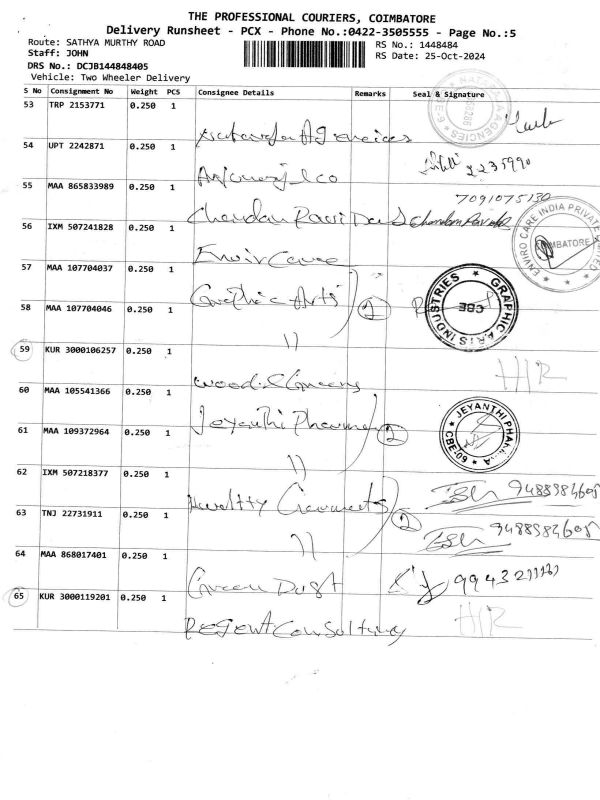 THE PROFESSIONAL COURIERS, COIMBATORE
Delivery Runsheet - PCX - Phone No.:0422-3505555 - Page No.:5
Route: SATHYA MURTHY ROAD RS No.: 1448484
Staff: JOHN RS Date: 25-Oct-2024
DRS No.: DCJB144848405
Vehicle: Two Wheeler Delivery
S No Consignment No Weight PCS Consignee Details Remarks Seal & Signature
53 TRP 2153771 0.250 1
54 UPT 2242871 0.250 1
55 MAA 865833989 0.250 1 7091075130
56 IXM 507241828 0.250 1 Envir Care ENVIRO CARE INDIA PRIVATE LIMITED COIMBATORE
57 MAA 107704037 0.250 1 Graphic Arts 2 GRAPHIC ARTS INDUSTRIES CBE
58 MAA 107704046 0.250 1 11
59 KUR 3000106257 0.250 1 H/R
60 MAA 105541366 0.250 1 Jeyanthi Pharma 2 JEYANTHI PHARMA CBE-09
61 MAA 109372964 0.250 1 11
62 IXM 507218377 0.250 1 Garments 2
63 TNJ 22731911 0.250 1 11
64 MAA 868017401 0.250 1 Green Dust
65 KUR 3000119201 0.250 1 Regent Consulting H/R